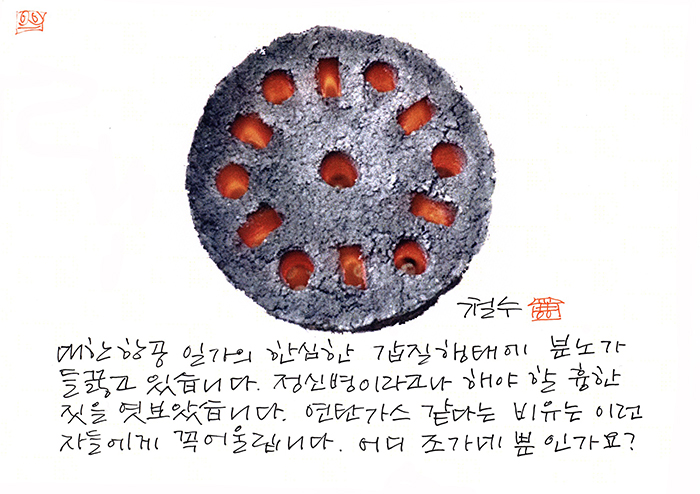 철수
대한항공 일가의 한심한 갑질행태에 분노가
들끓고 있습니다. 정신병이라고나 해야 할 흉한
짓을 엿보았습니다. 연탄가스 같다는 비유는 이런
자들에게 꼭 어울립니다. 어디 조가네 뿐인가요?